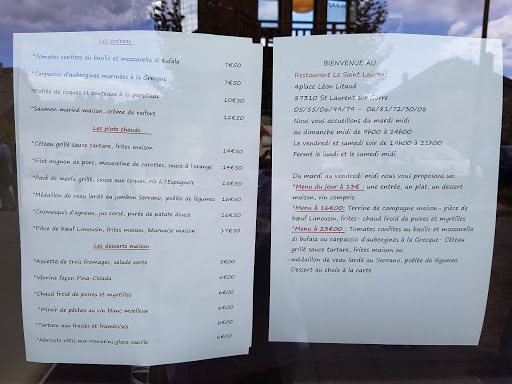 Les entrées
*Tomates confites au basilic et mozzarella di bufala 7€50
*Carpaccio d'aubergines marinées à la Grecque 7€50
*Poêlée de coques et couteaux à la persillade 10€50
*Saumon mariné maison, crème de raifort 12€50
Les plats chauds
*Céteau grillé sauce tartare, frites maison 14€50
*Filet mignon de porc, mousseline de carottes, sauce à l'orange 14€50
*Pavé de merlu grillé, sauce aux coques, riz à l'Espagnole 15€50
*Médaillon de veau lardé au jambon Serrano, poêlée de légumes 16€50
*Cromesquis d'agneau, jus corsé, purée de patate douce 16€50
*Pièce de bœuf Limousin, frites maison, béarnaise maison 17€50
Les desserts maison
*Assiette de trois fromages, salade verte 5€00
*Vérrine façon Pina-Colada 6€00
*Chaud froid de poires et myrtilles 6€00
*Miroir de pêches au vin blanc moelleux 6€00
*Tartare aux fraises et framboises 6€00
*Abricots rôtis aux romarins,glace vanille 6€00
BIENVENUE AU
Restaurant Le Saint Laurent
4place Léon Litaud
87310 St Laurent sur Gorre
05/55/06/99/79 - 06/81/72/30/08
Nous vous accueillons du mardi midi
au dimanche midi de 9h00 à 14h00
Le vendredi et samedi soir de 19h00 à 21h00
Fermé le lundi et le samedi midi
Du mardi au vendredi midi nous vous proposons un:
*Menu du jour à 13€ : une entrée, un plat, un dessert
maison, vin compris
*Menu à 16€00: Terrine de campagne maison- pièce de
bœuf Limousin, frites- chaud froid de poires et myrtilles
*Menu à 23€00 : Tomates confites au basilic et mozzarella
di bufala ou carpaccio d'aubergines à la Grecque- Céteau
grillé sauce tartare, frites maison ou
médaillon de veau lardé au Serrano, poêlée de légumes
Dessert au choix à la carte